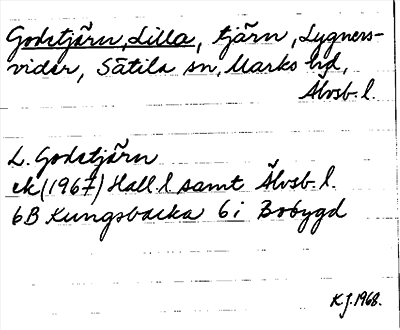 Godstjärn, Lilla, tjärn, Lygners-
vider, Sätila sn, Marks hd,
Älvsb. l.
L. Godstjärn
ek (1967) Hall. l samt Älvsb. l.
6B Kungsbacka 6i Bobygd
K.J. 1968.